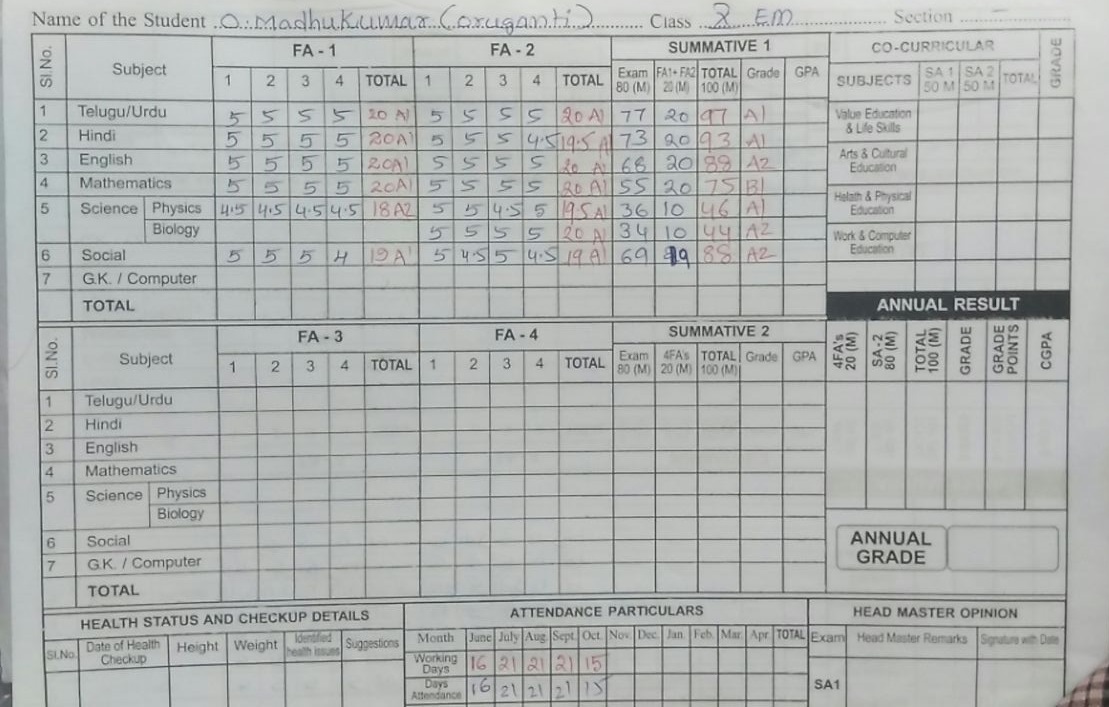 Name of the Student O. Madhukumar (oruganti) Class X EM Section
Sl.No. Subject FA - 1 FA - 2 SUMMATIVE 1 CO-CURRICULAR GRADE
1 2 3 4 TOTAL 1 2 3 4 TOTAL Exam 80 (M) FA1+ FA2 20 (M) TOTAL 100 (M) Grade GPA SUBJECTS SA 1 50 M SA 2 50 M TOTAL
1 Telugu/Urdu 5 5 5 5 20 A1 5 5 5 5 20 A1 77 20 97 A1 Value Education & Life Skills
2 Hindi 5 5 5 5 20A1 5 5 5 4.5 19.5 A1 73 20 93 A1
3 English 5 5 5 5 20A1 5 5 5 5 20 A1 68 20 88 A2 Arts & Cultural Education
4 Mathematics 5 5 5 5 20A1 5 5 5 5 20 A1 55 20 75 B1
5 Science Physics 4.5 4.5 4.5 4.5 18A2 5 5 4.5 5 19.5A1 36 10 46 A1 Helath & Physical Education
Biology 5 5 5 5 20 A1 34 10 44 A2 Work & Computer Education
6 Social 5 5 5 4 19 A1 5 4.5 5 4.5 19 A1 69 19 88 A2
7 G.K. / Computer
TOTAL ANNUAL RESULT
Sl.No. Subject FA - 3 FA - 4 SUMMATIVE 2 4FA's 20 (M) SA-2 80 (M) TOTAL 100 (M) GRADE GRADE POINTS CGPA
1 2 3 4 TOTAL 1 2 3 4 TOTAL Exam 80 (M) 4FA's 20 (M) TOTAL 100 (M) Grade GPA
1 Telugu/Urdu
2 Hindi
3 English
4 Mathematics
5 Science Physics
Biology
6 Social ANNUAL GRADE
7 G.K. / Computer
TOTAL
HEALTH STATUS AND CHECKUP DETAILS ATTENDANCE PARTICULARS HEAD MASTER OPINION
Sl.No. Date of Health Checkup Height Weight Identified health issues Suggestions Month June July Aug. Sept. Oct. Nov. Dec. Jan. Feb. Mar. Apr. TOTAL Exam Head Master Remarks Signature with Date
Working Days 16 21 21 21 15
Days Attendance 16 21 21 21 15 SA1